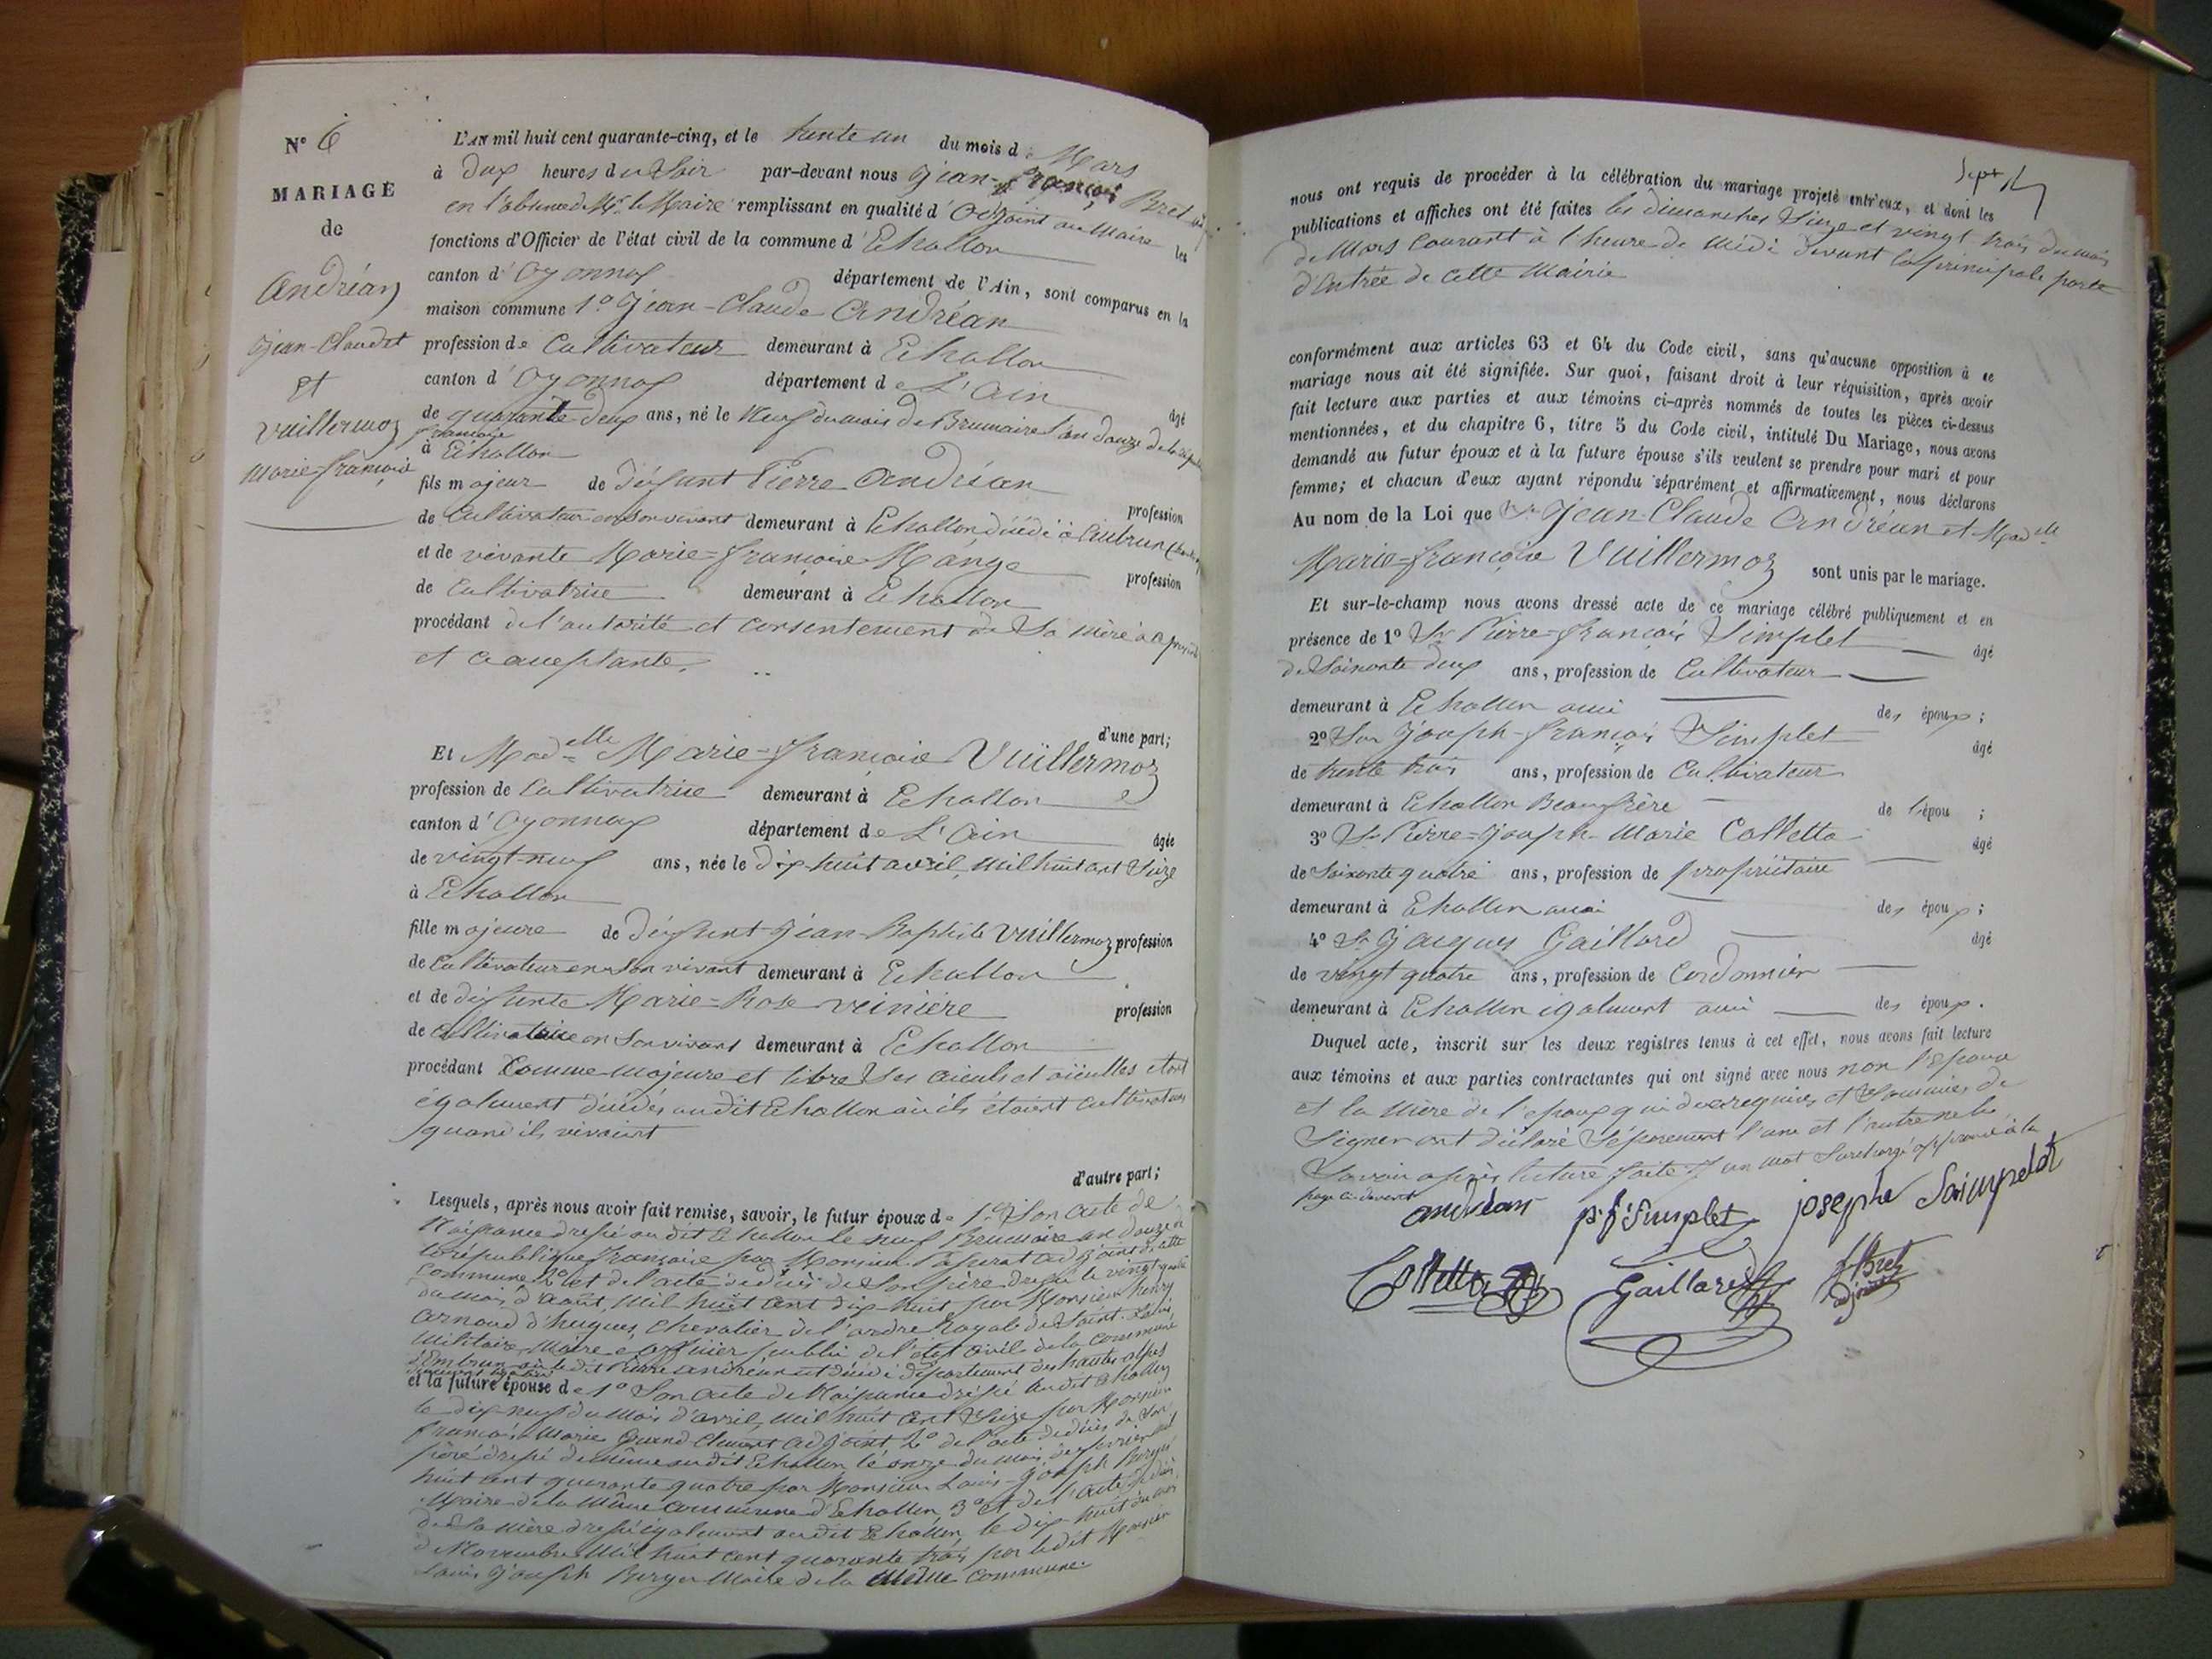 N° 6
MARIAGE
de
Andréan
Jean-Claude et
et
Vuillermoz
Marie-françoise
L'AN mil huit cent quarante-cinq, et le trente un du mois de Mars
à deux heures du Soir par-devant nous Jean-François Bret
en l'absence de Mr. le Maire remplissant en qualité d'adjoint au Maire les
fonctions d'Officier de l'état civil de la commune d'Echallon
canton d'Oyonnax département de l'Ain, sont comparus en la
maison commune 1° Jean-Claude Andréan
profession de Cultivateur demeurant à Echallon
canton d'Oyonnax département de L'Ain âgé
de quarante deux ans, né le Neuf du mois de Brumaire l'an douze de la république
française
à Echallon
fils majeur de défunt Pierre Andréan profession
de Cultivateur en son vivant demeurant à Echallon décédé à
et de vivante Marie-françoise Mange profession
de Cultivatrice demeurant à Echallon
procédant de l'autorité et consentement de Sa mère à ce présente
et acceptante.
d'une part;
Et Madelle Marie-françoise Vuillermoz
profession de Cultivatrice demeurant à Echallon
canton d'Oyonnax département de L'Ain âgée
de vingt-neuf ans, née le dix-huit avril, mil huit cent Seize
à Echallon
fille majeure de défunt Jean-Baptiste Vuillermoz profession
de Cultivateur en son vivant demeurant à Echallon
et de défunte Marie-Rose veiniere profession
de cultivatrice en Son vivant demeurant à Echallon
procédant Comme Majeure et libre Ses aieuls et aïeulles étant
également décédés audit Echallon où ils étaient cultivateurs
quand ils vivaient
d'autre part;
Lesquels, après nous avoir fait remise, savoir, le futur époux de 1° Son acte de
Naissance dressé audit Echallon le neuf Brumaire an douze de
la république française par Monsieur adjoint de cette
Commune 2° et de l'acte de décès de Son père dressé le vingt quatre
du mois d'août, mil huit cent dix huit par Monsieur henry
arnaud d'hugues, Chevalier de l'ordre Royal de Saint-Louis,
Militaire, Maire officier public de l'état civil de la commune
d'Embrun où le dit Pierre andréan est décédé département des hautes alpes
et la future épouse de 1° Son acte de Naissance dressé audit Echallon
le dix neuf du Mois d'avril, mil huit cent Seize par Monsieur
François Marie adjoint 2° de l'acte de décès de Son
père dressé de même audit Echallon, le onze du mois de février mil
huit cent quarante quatre par Monsieur Louis-Joseph Berger
Maire de la même commune d'Echallon, 3° et de l'acte de décès
de Sa mère dressé également audit Echallon, le dix huit du mois
de Novembre mil huit cent quarante trois par ledit Monsieur
Louis Joseph Berger Maire de la Même Commune.
Sept
nous ont requis de procéder à la célébration du mariage projeté entr'eux, et dont les
publications et affiches ont été faites les dimanches Seize et vingt trois du mois
de Mars Courant à l'heure de Midi devant la principale porte
d'Entrée de cette Mairie
conformément aux articles 63 et 64 du Code civil, sans qu'aucune opposition à ce
mariage nous ait été signifiée. Sur quoi, faisant droit à leur réquisition, après avoir
fait lecture aux parties et aux témoins ci-après nommés de toutes les pièces ci-dessus
mentionnées, et du chapitre 6, titre 5 du Code civil, intitulé Du Mariage, nous avons
demandé au futur époux et à la future épouse s'ils veulent se prendre pour mari et pour
femme; et chacun d'eux ayant répondu séparément et affirmativement, nous déclarons
Au nom de la Loi que Sr Jean-Claude Andréan et Madelle
Marie-françoise Vuillermoz sont unis par le mariage.
Et sur-le-champ nous avons dressé acte de ce mariage célébré publiquement et en
présence de 1° Sr Pierre-françois Simplet âgé
de Soixante deux ans, profession de Cultivateur
demeurant à Echallon ami des époux;
2° Sr Joseph-françois Simplet âgé
de trente trois ans, profession de Cultivateur
demeurant à Echallon Beau frère de l'épou ;
3° Sr Pierre-Joseph-Marie Colletta âgé
de Soixante quatre ans, profession de propriétaire
demeurant à Echallon ami des époux;
4° Sr Jacques Gaillard âgé
de vingt quatre ans, profession de Cordonnier
demeurant à Echallon également ami des époux.
Duquel acte, inscrit sur les deux registres tenus à cet effet, nous avons fait lecture
aux témoins et aux parties contractantes qui ont signé avec nous non l'épouse
et la Mère de l'époux qui de ce requises et Sommées de
Signer ont déclaré Séparément l'une et l'autre ne le
Savoir après lecture faite un mot Surchargé approuvé à la
page ci-devant
andréan p.f Simplet joseph Saimpelet
Colletta Gaillard Bret
adjoint